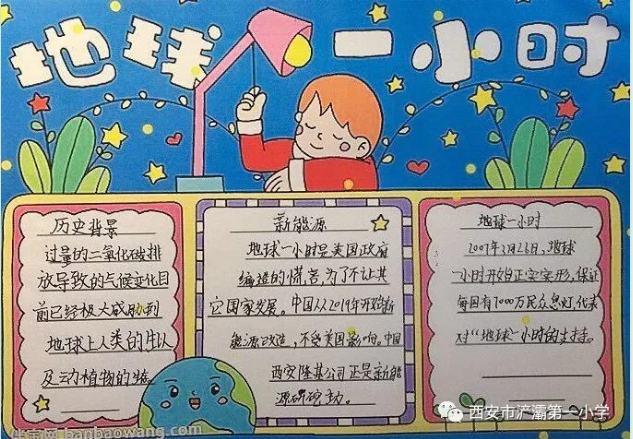 地球一小时
历史背景
过量的二氧化碳排
放导致的气候变化目
前已经极大威胁到
地球上人类的生
及动植物的
新能源
地球一小时是美国政府
编造的谎言为了不让其
它国家发展。中国从2019年开始新
能源改造，不受美国影响。中国
西安隆基公司还是新能
源研
地球一小时
2007年3月26日，地球
一小时开始正实实形，保证
每国有7000万民众息灯，代表
对“地球”一小时的支持。
西安市浐灞第一小学
banbaowang.com